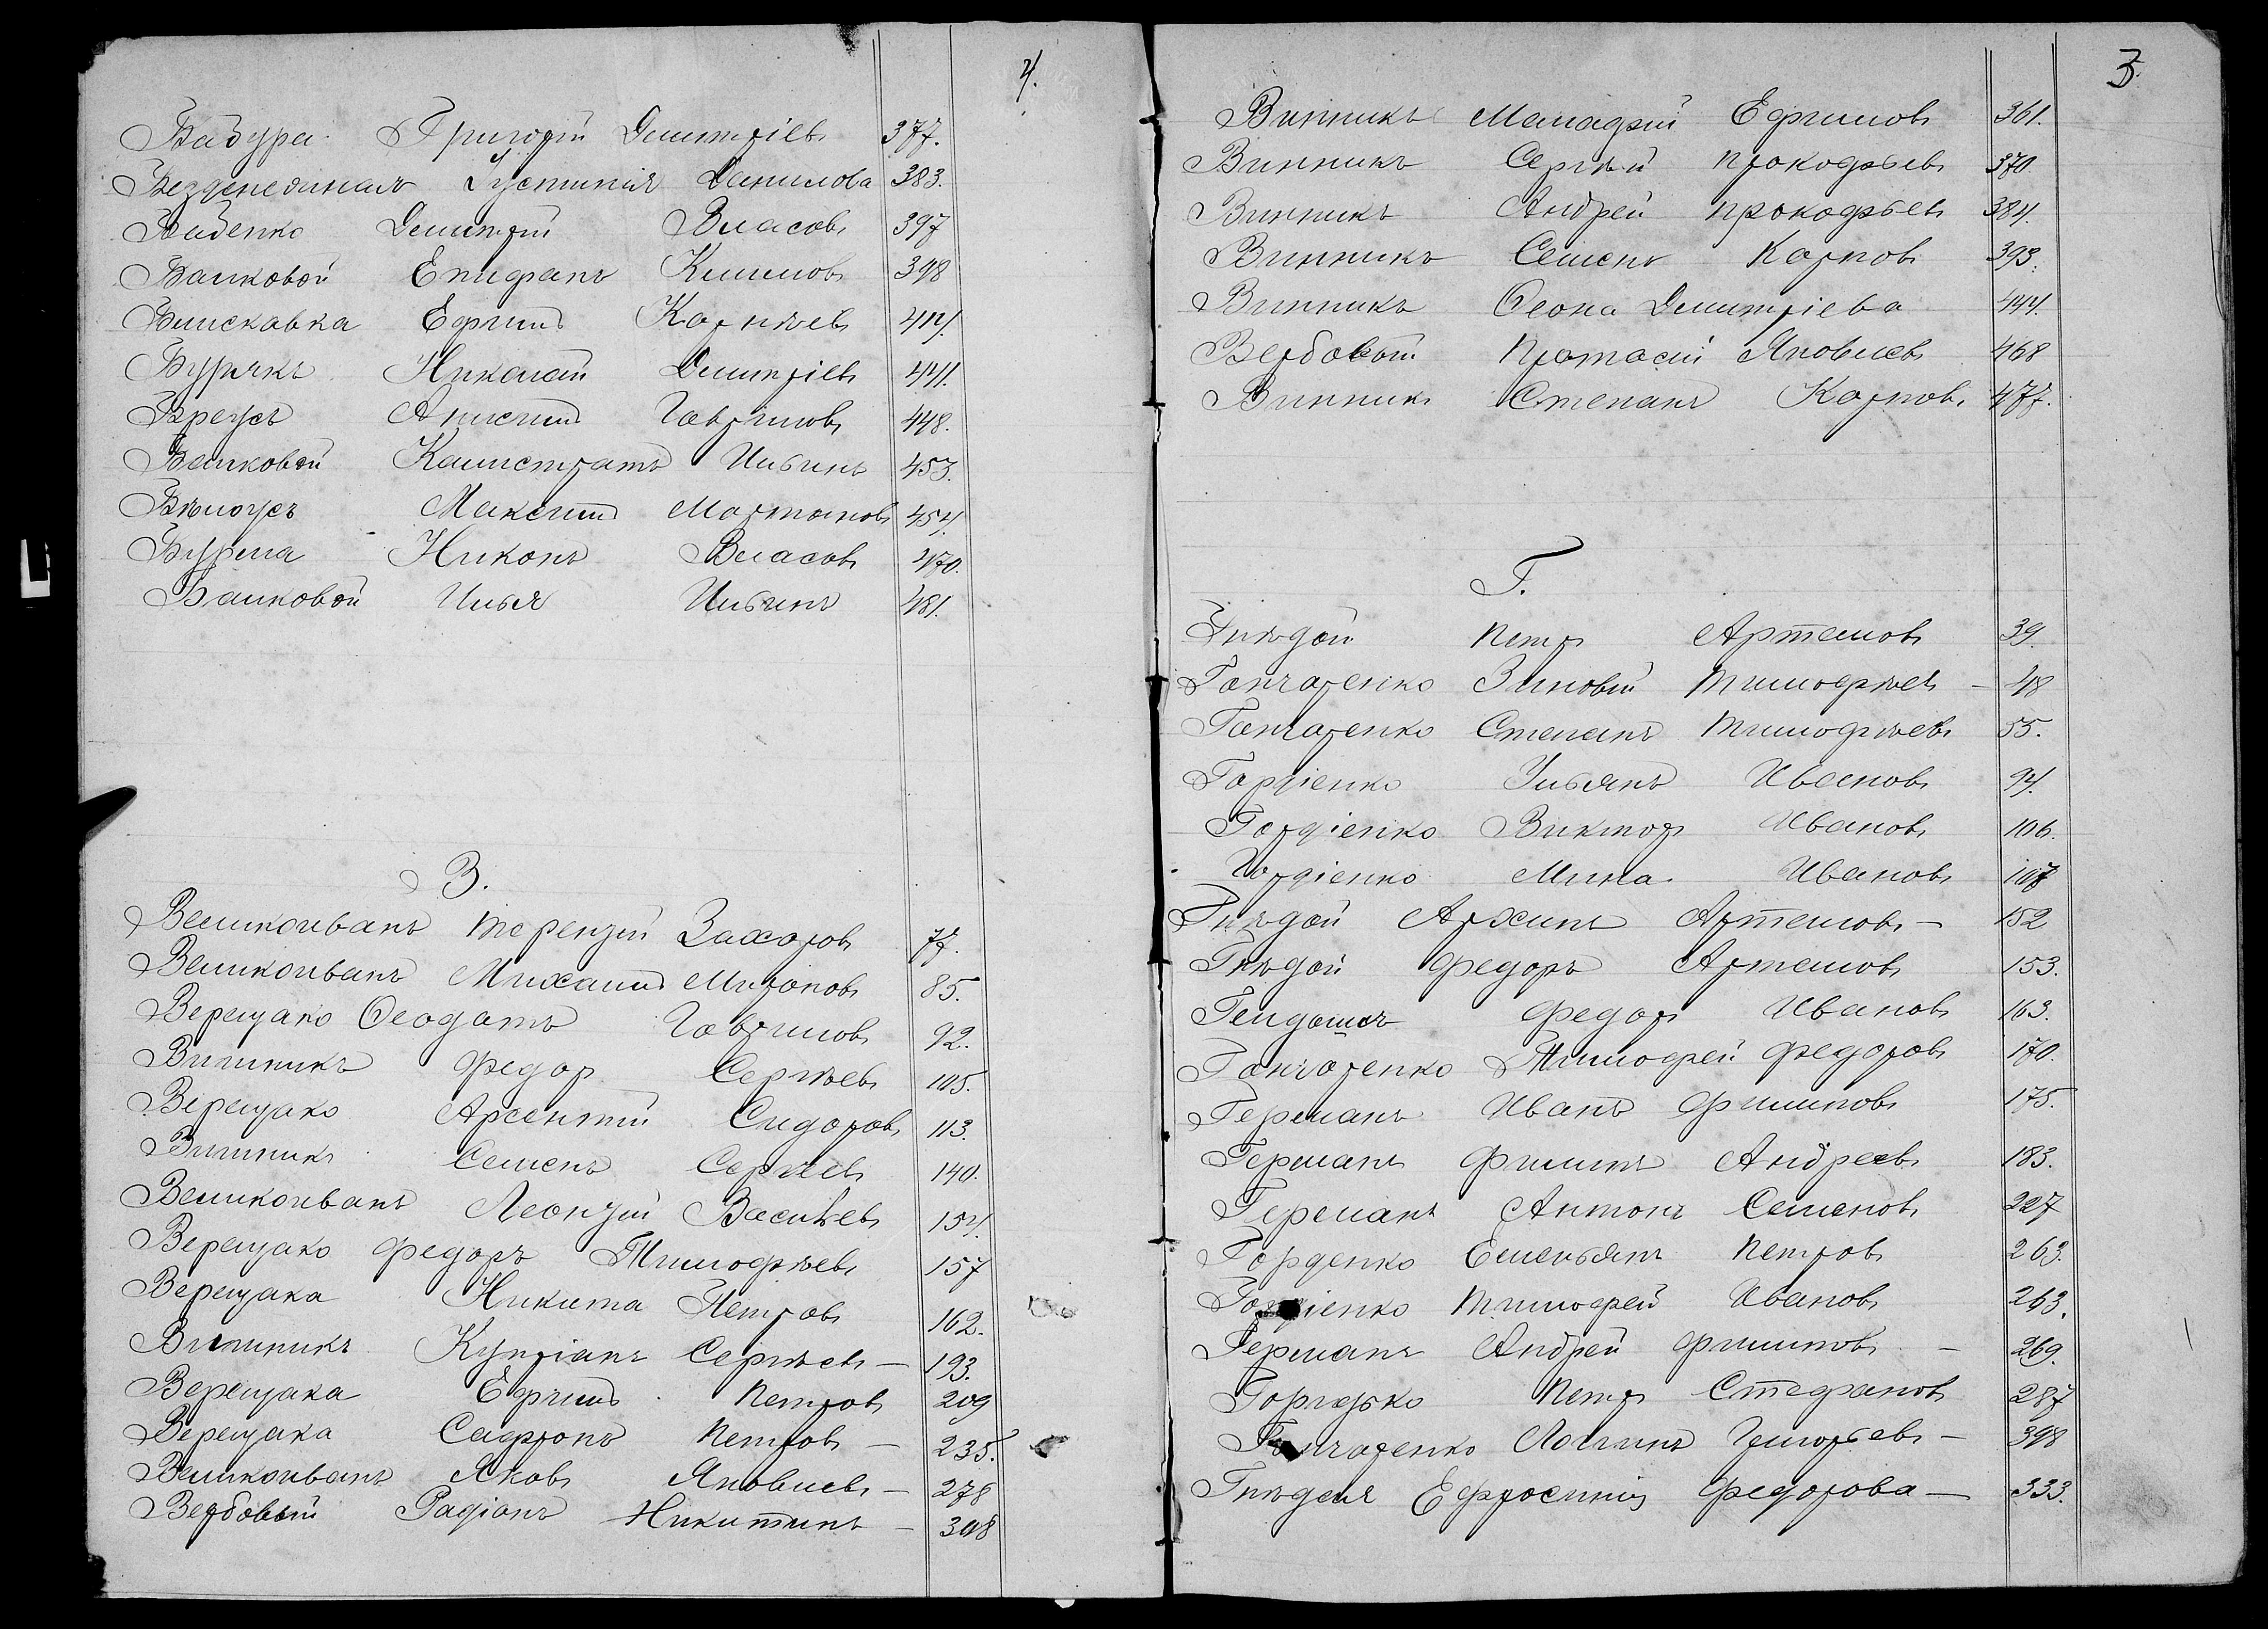 4.
Бабура Григорій Дмитріевъ 377.
Безденежная Іустинія Данилова 383.
Бабенко Дмитрій Власовъ 397
Балковой Епифанъ Климовъ 398
Блискавка Ефимъ Корнѣевъ 414.
Бурякъ Николай Дмитріевъ 441.
Бреусъ Анисимъ Гавриловъ 448.
Балковой Калистратъ Ильинъ 453.
Бѣлоусъ Максимъ Мартыновъ 454.
Бурма Никонъ Власовъ 470.
Балковой Илья Ильинъ 481.
В.
Великоиванъ Терентій Захаровъ 77.
Великоиванъ Михаилъ Мироновъ 85.
Верещако Ѳеодотъ Гавриловъ 92.
Винникъ Федор Сергѣевъ 105.
Верещако Арсентій Сидоровъ 113.
Винникъ Семенъ Сергѣевъ 140.
Великоиванъ Леонтій Васильевъ 154.
Верещако Федоръ Тимофѣевъ 157
Верещака Никита Петровъ 162.
Винникъ Купріанъ Сергѣевъ — 193.
Верещака Ефимъ Петровъ 209
Верещака Сафронъ Петровъ — 235.
Великоиванъ Яковъ Яковлевъ — 278
Вербовый Радіонъ Никитинъ — 308
3.
Винникъ Ефимовъ 361.
Винникъ Сергѣй Прокофьевъ 370.
Винникъ Андрей Прокофьевъ 384.
Винникъ Семенъ Карповъ 393.
Винникъ Ѳеона Дмитріева 444.
Вербовой Протасій Яковлевъ 468
Винникъ Степанъ Карповъ 477.
Г.
Гнѣдой Петръ Артемовъ 39.
Гончаренко Зиновій Тимофѣевъ — 48
Гончаренко Степанъ Тимофѣевъ 55.
Гордіенко Ульянъ Ивановъ 94.
Гордіенко Викторъ Ивановъ 106.
Гордіенко Мина Ивановъ 107
Гнѣдой Архипъ Артемовъ — 152
Гнѣдой Федоръ Артемовъ 153.
Федоръ Ивановъ 163.
Гончаренко Тимофей Федоровъ 170.
Германъ Иванъ Филиповъ 175.
Германъ Филипъ Андреевъ 183.
Германъ Антонъ Семеновъ 227
Горденко Емельянъ Петровъ 263.
Гордіенко Тимофей Ивановъ 263.
Германъ Андрей Филиповъ — 269.
Петръ Стефановъ 287
Гончаренко Логинъ Григорьевъ — 398
Гнѣдая Ефросинія Федорова — 333.